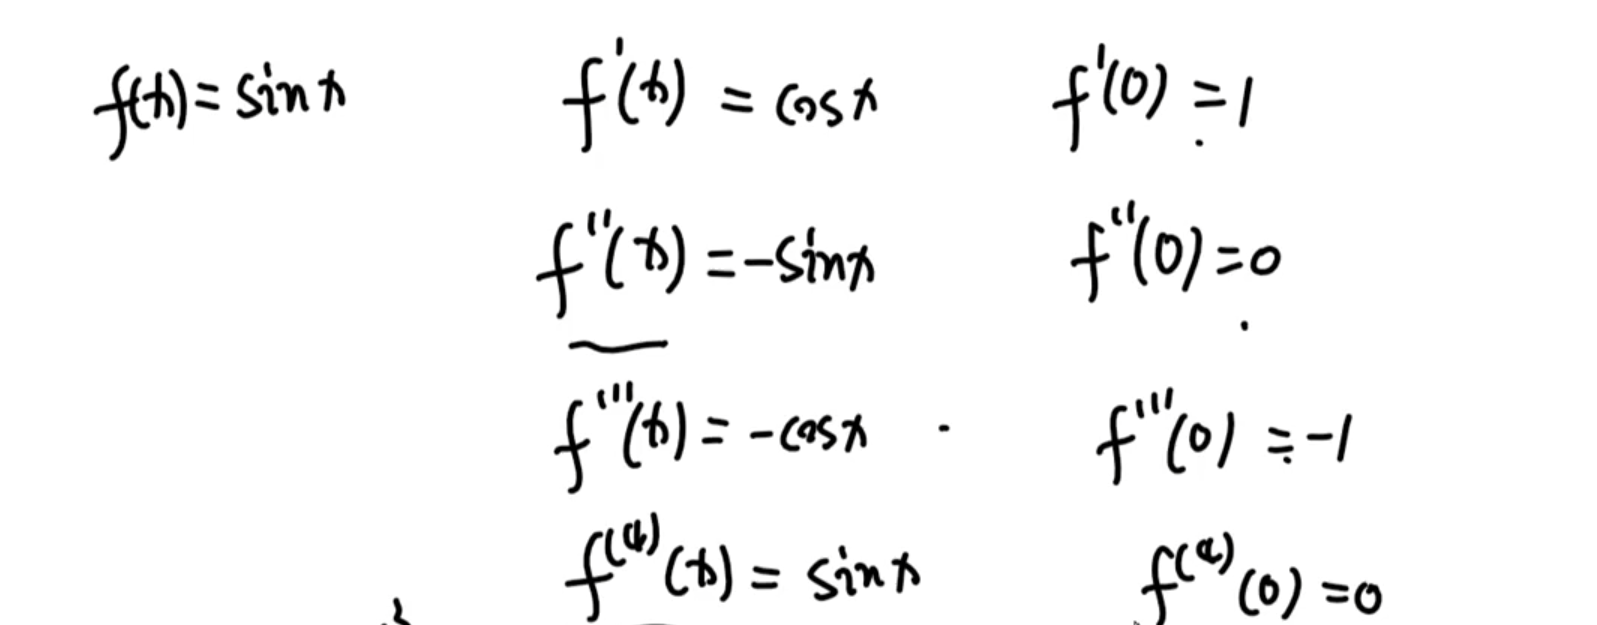 f(x) = sin x f'(x) = cos x f'(0) = 1
f''(x) = -sin x f''(0) = 0
f'''(x) = -cos x f'''(0) = -1
f⁽⁴⁾(x) = sin x f⁽⁴⁾(0) = 0